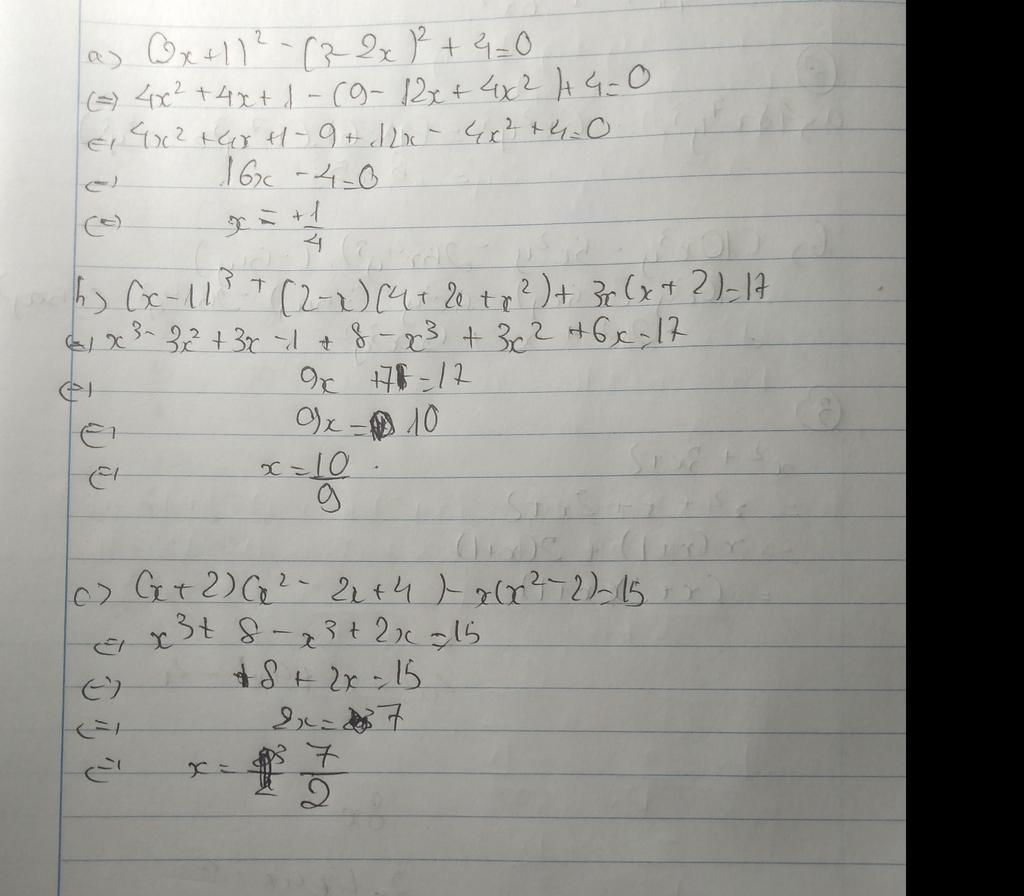 a) (2x+1)² - (3-2x)² + 4=0
(=) 4x² + 4x + 1 - (9 - 12x + 4x²) + 4=0
(=) 4x² + 4x + 1 - 9 + 12x - 4x² + 4=0
(=) 16x - 4=0
(=) x = +1/4
b) (x-1)³ + (2-x)(4+2x+x²) + 3x(x+2)=17
(=) x³ - 3x² + 3x - 1 + 8 - x³ + 3x² + 6x=17
(=) 9x +7=17
(=) 9x = 10
(=) x = 10/9
c) (x+2)(x² - 2x+4) - x(x²-2)=15
(=) x³ + 8 - x³ + 2x = 15
(=) +8 + 2x = 15
(=) 2x = 7
(=) x = 7/2